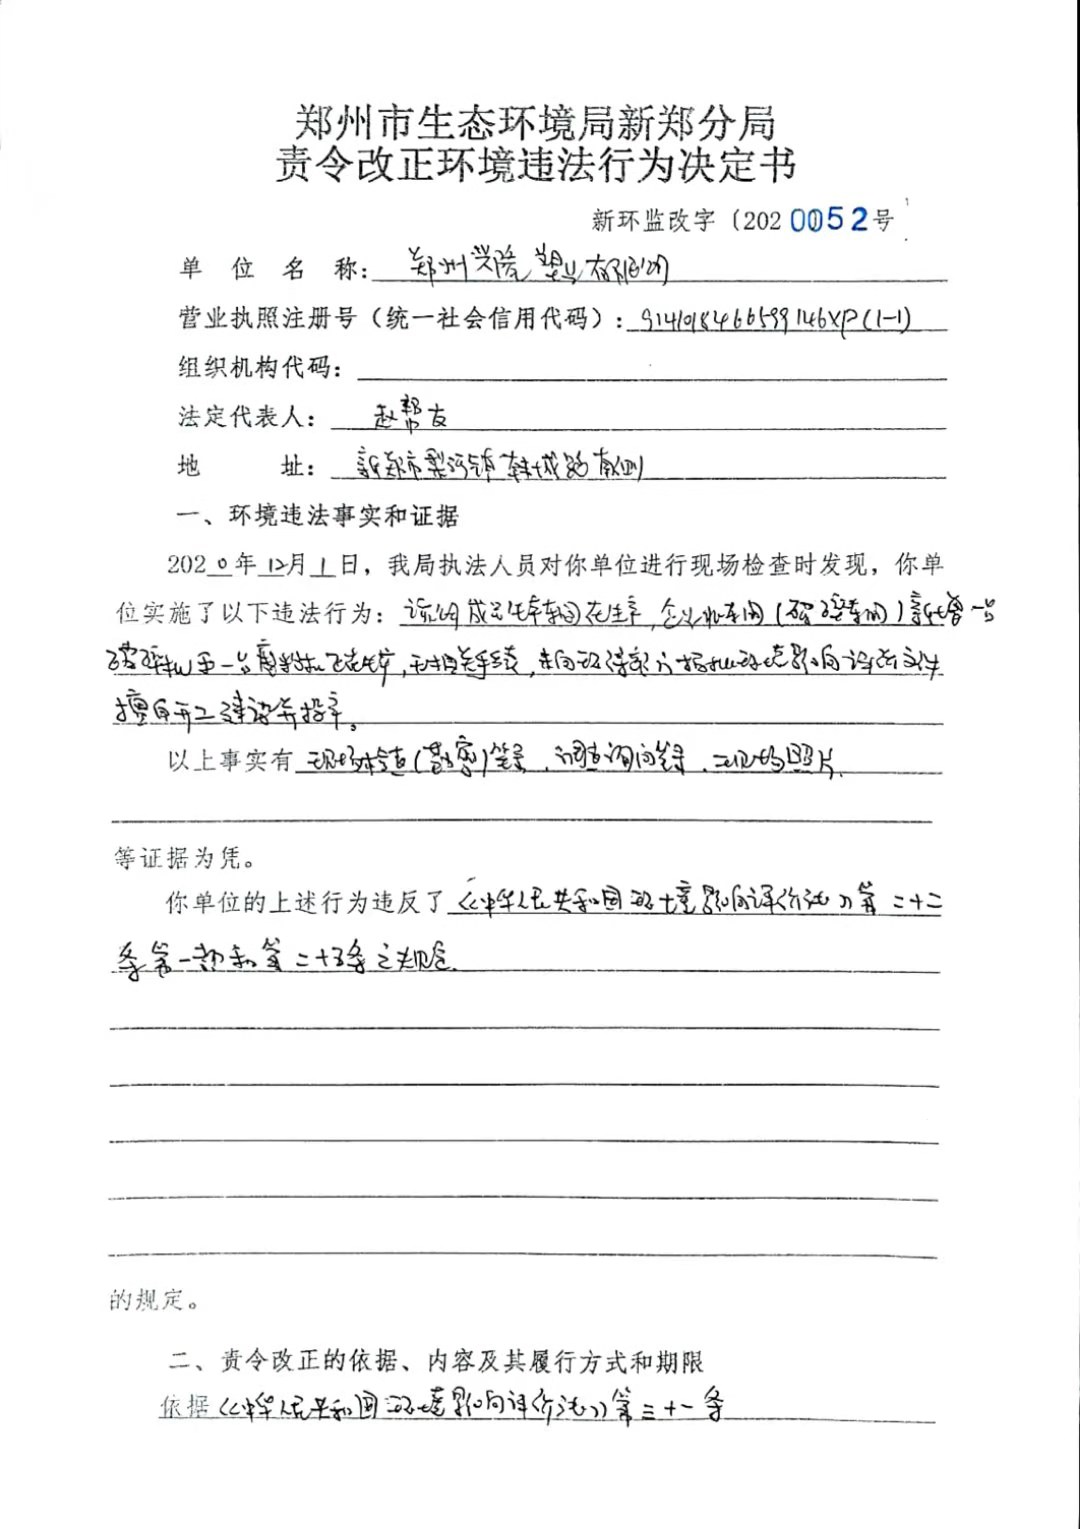 郑州市生态环境局新郑分局
责令改正环境违法行为决定书
新环监改字〔202 0052号
单位名称：郑州兴院塑业有限公司
营业执照注册号（统一社会信用代码）：9141018466599146XP(1-1)
组织机构代码：
法定代表人：赵帮友
地址：新郑市梨河镇韩城路南侧
一、环境违法事实和证据
2020年12月1日，我局执法人员对你单位进行现场检查时发现，你单
位实施了以下违法行为：成品生产车间在生产，车间（破碎车间）新增一台
破碎机和一台磨粉机正在生产，无相关手续，未向环保部门报批环境影响评价文件
擅自开工建设并投产。
以上事实有现场检查(勘察)笔录、调查询问笔录、现场照片
等证据为凭。
你单位的上述行为违反了《中华人民共和国环境影响评价法》第二十二
条第一款和第二十五条之规定
的规定。
二、责令改正的依据、内容及其履行方式和期限
依据《中华人民共和国环境影响评价法》第三十一条